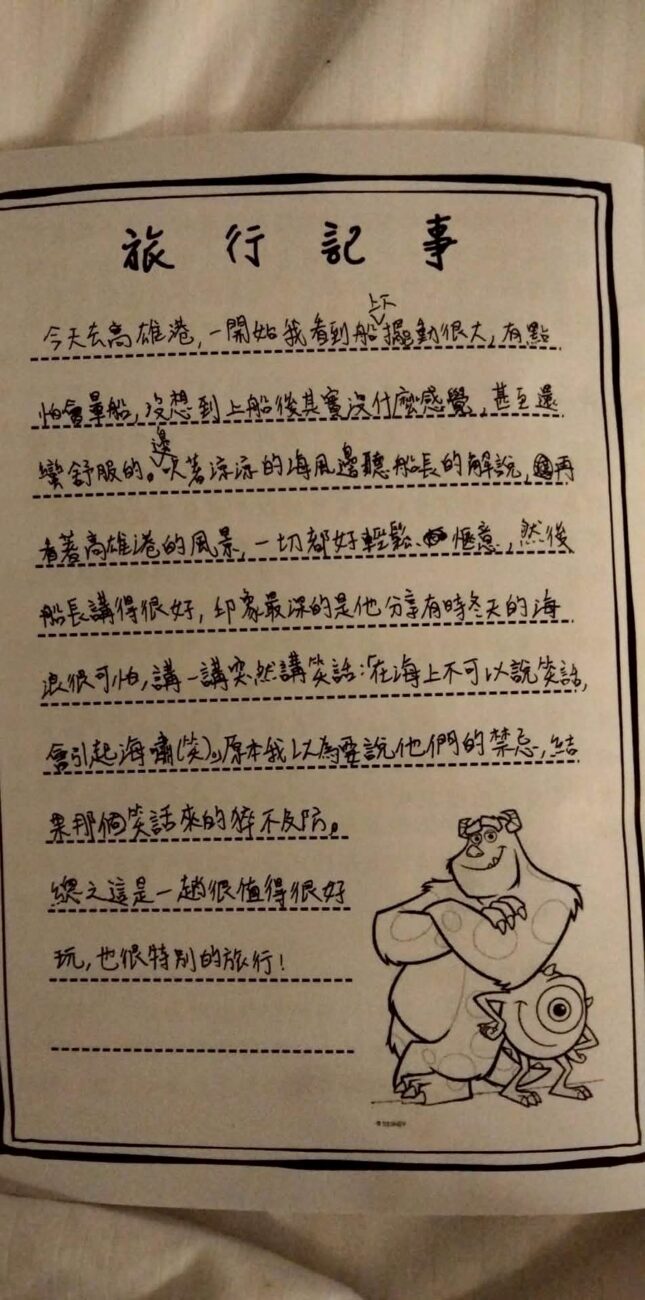 旅行記事
今天去高雄港,一開始我看到船上下擺動很大,有點
怕會暈船,沒想到上船後其實沒什麼感覺,甚至還
蠻舒服的。邊吹著涼涼的海風邊聽船長的解說,再
看著高雄港的風景,一切都好輕鬆、愜意,然後
船長講得很好,印象最深的是他分享有時冬天的海
浪很可怕,講一講突然講笑話:「在海上不可以說笑話,
會引起海嘯(笑)」原本我以為要說他們的禁忌,結
果那個笑話來的猝不及防。
總之這是一趟很值得很好
玩,也很特別的旅行!